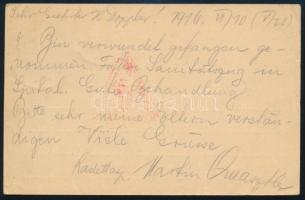 Sehr Geehrter H. Doppler! 1916. VI/10 (V/28)
Bin verwundet gefangen ge-
nommen Fahre Sanitätszug in
Spital. Gute Behandlung
Bitte sehr meine Eltern verstän-
digen Viele Grüsse
Kadettasp. Martin